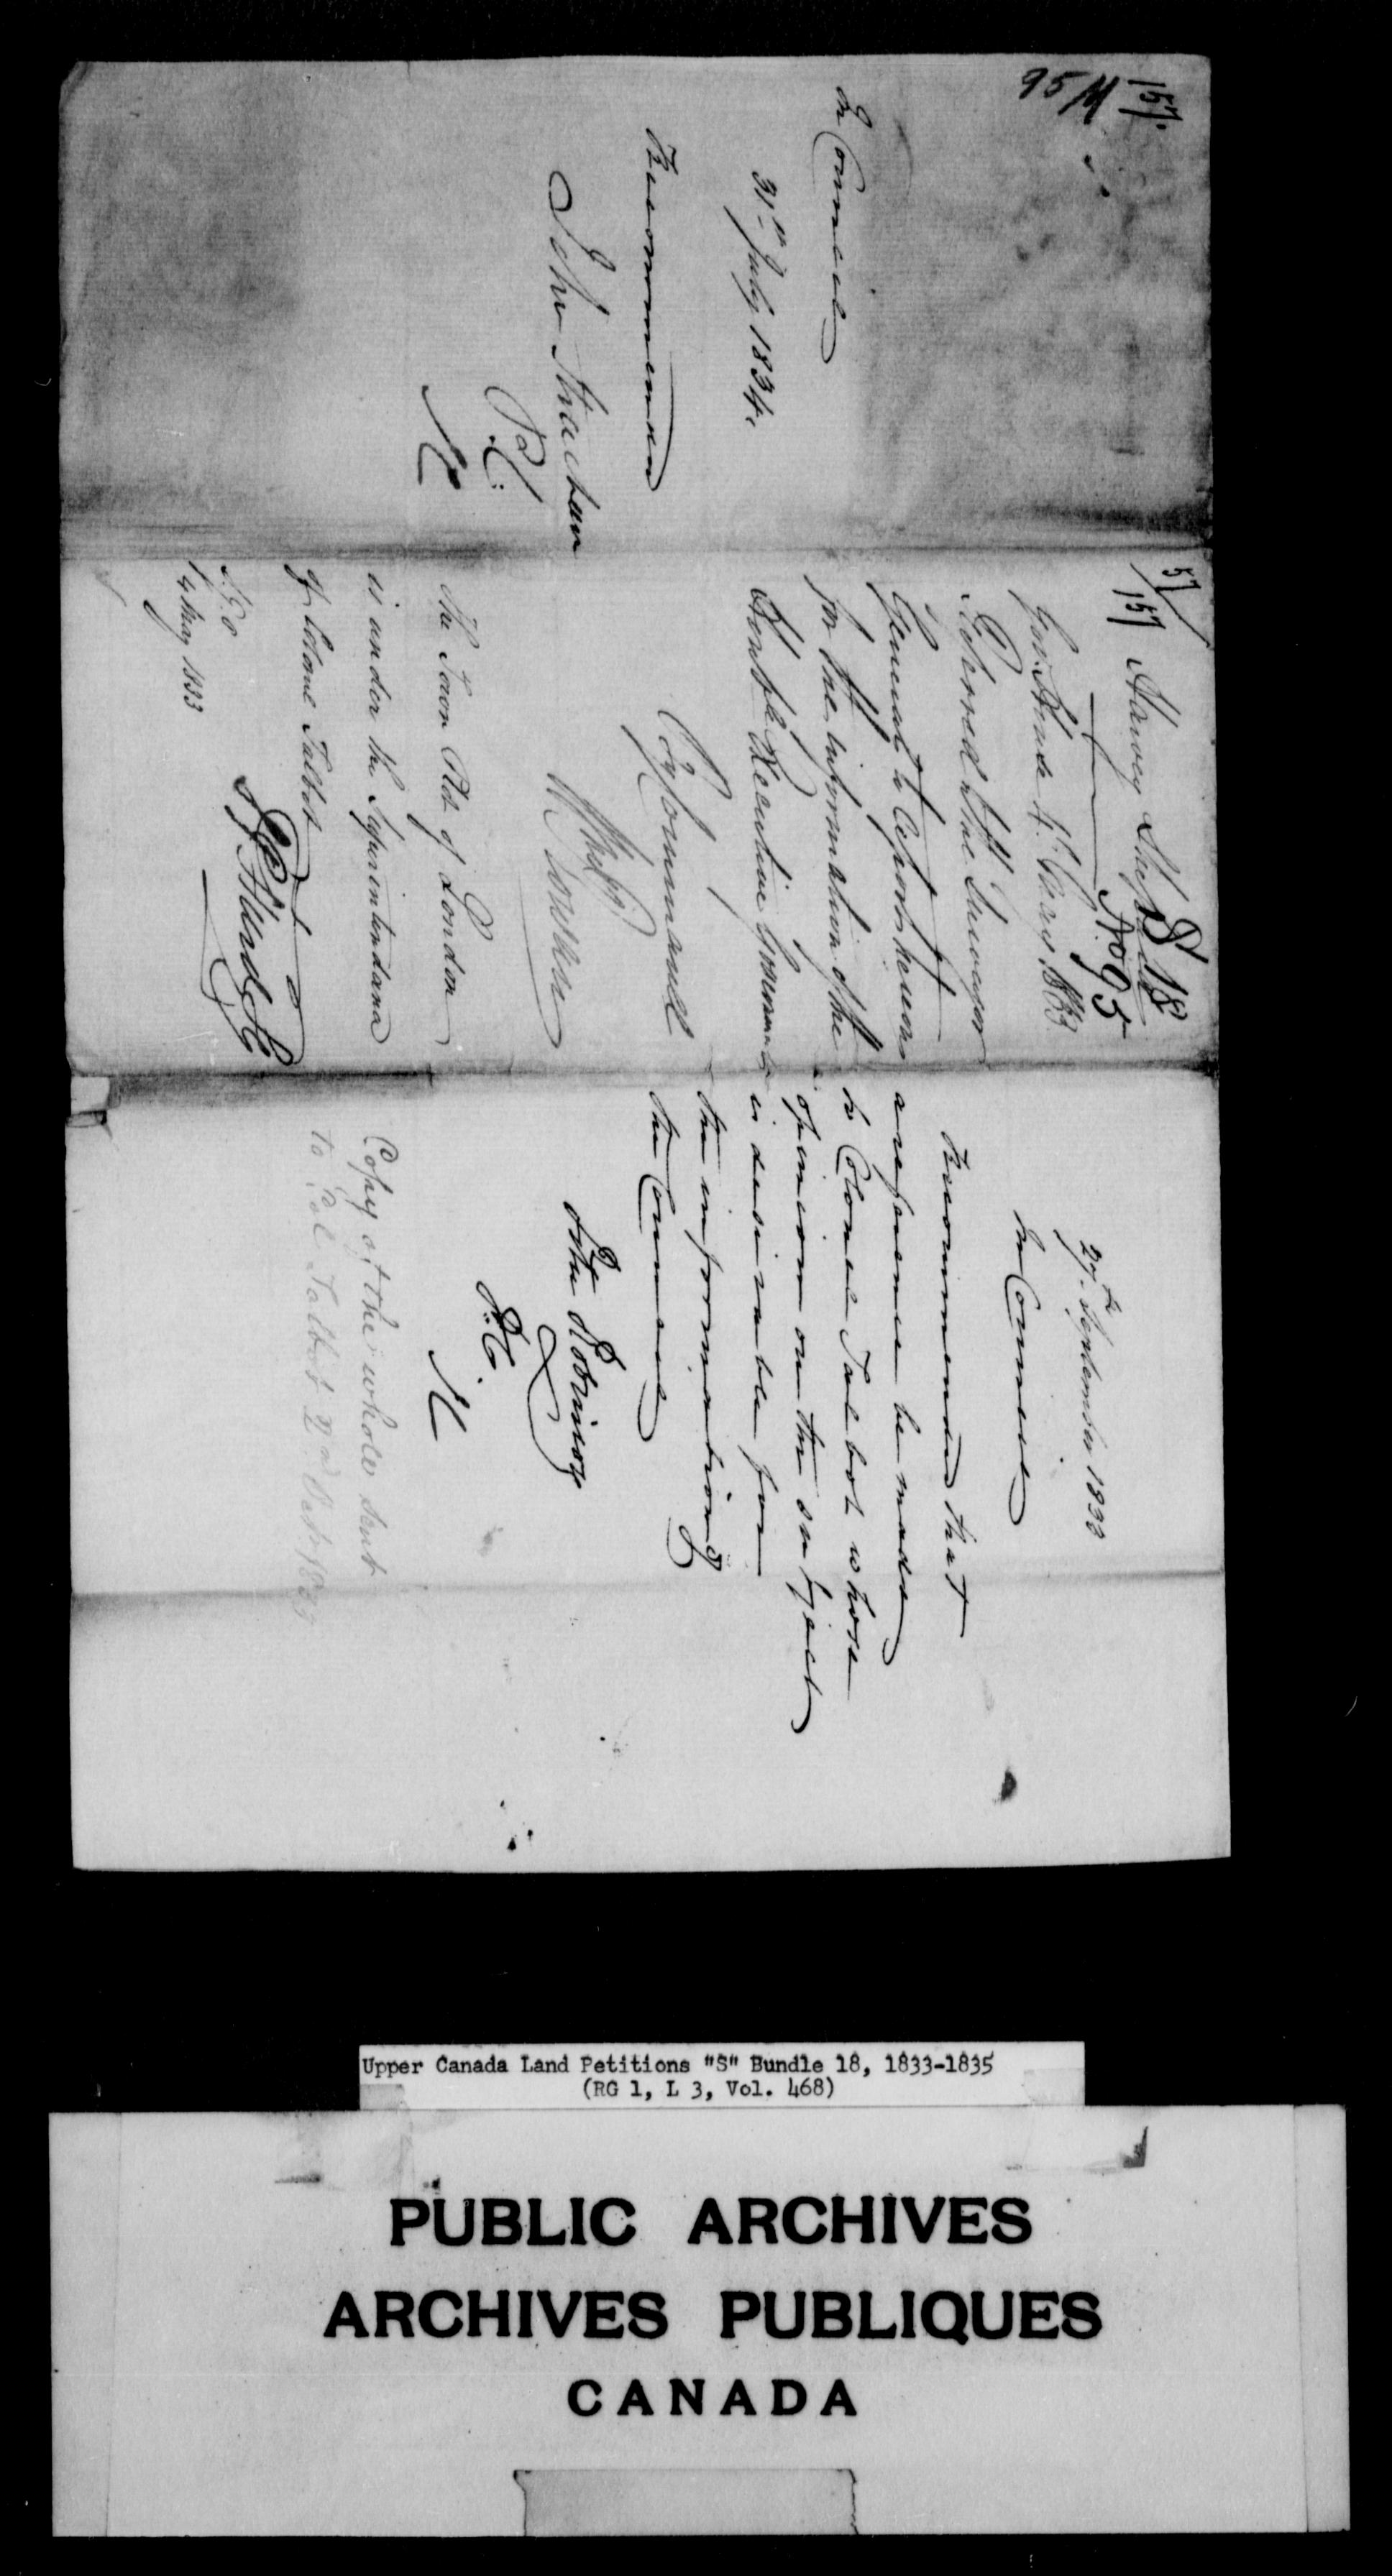 157.
95 M
In Council
31st July 1834.
Recommended
John Strachan
P.C.
57
157
Harvey
S 18
No 95
Govt House 4 May 1833
Referred to the Surveyor
General to Report hereon
for the information of the
Honble Executive Government
By Command
Wm Rowan
The Town Plot of London
is under the Superintendance
of Colonel Talbot
S.G.O
14 May 1833
S P Hurd
27th September 1833
In Council
Recommended that
a reference be made
to Colonel Talbot whose
opinion on the subject
is desirable for
the information of
the Council
Peter Robinson
P.C.
Copy of the whole sent
to Col Talbot 2nd Oct 1833
Upper Canada Land Petitions "S" Bundle 18, 1833-1835
(RG 1, L 3, Vol. 468)
PUBLIC ARCHIVES
ARCHIVES PUBLIQUES
CANADA